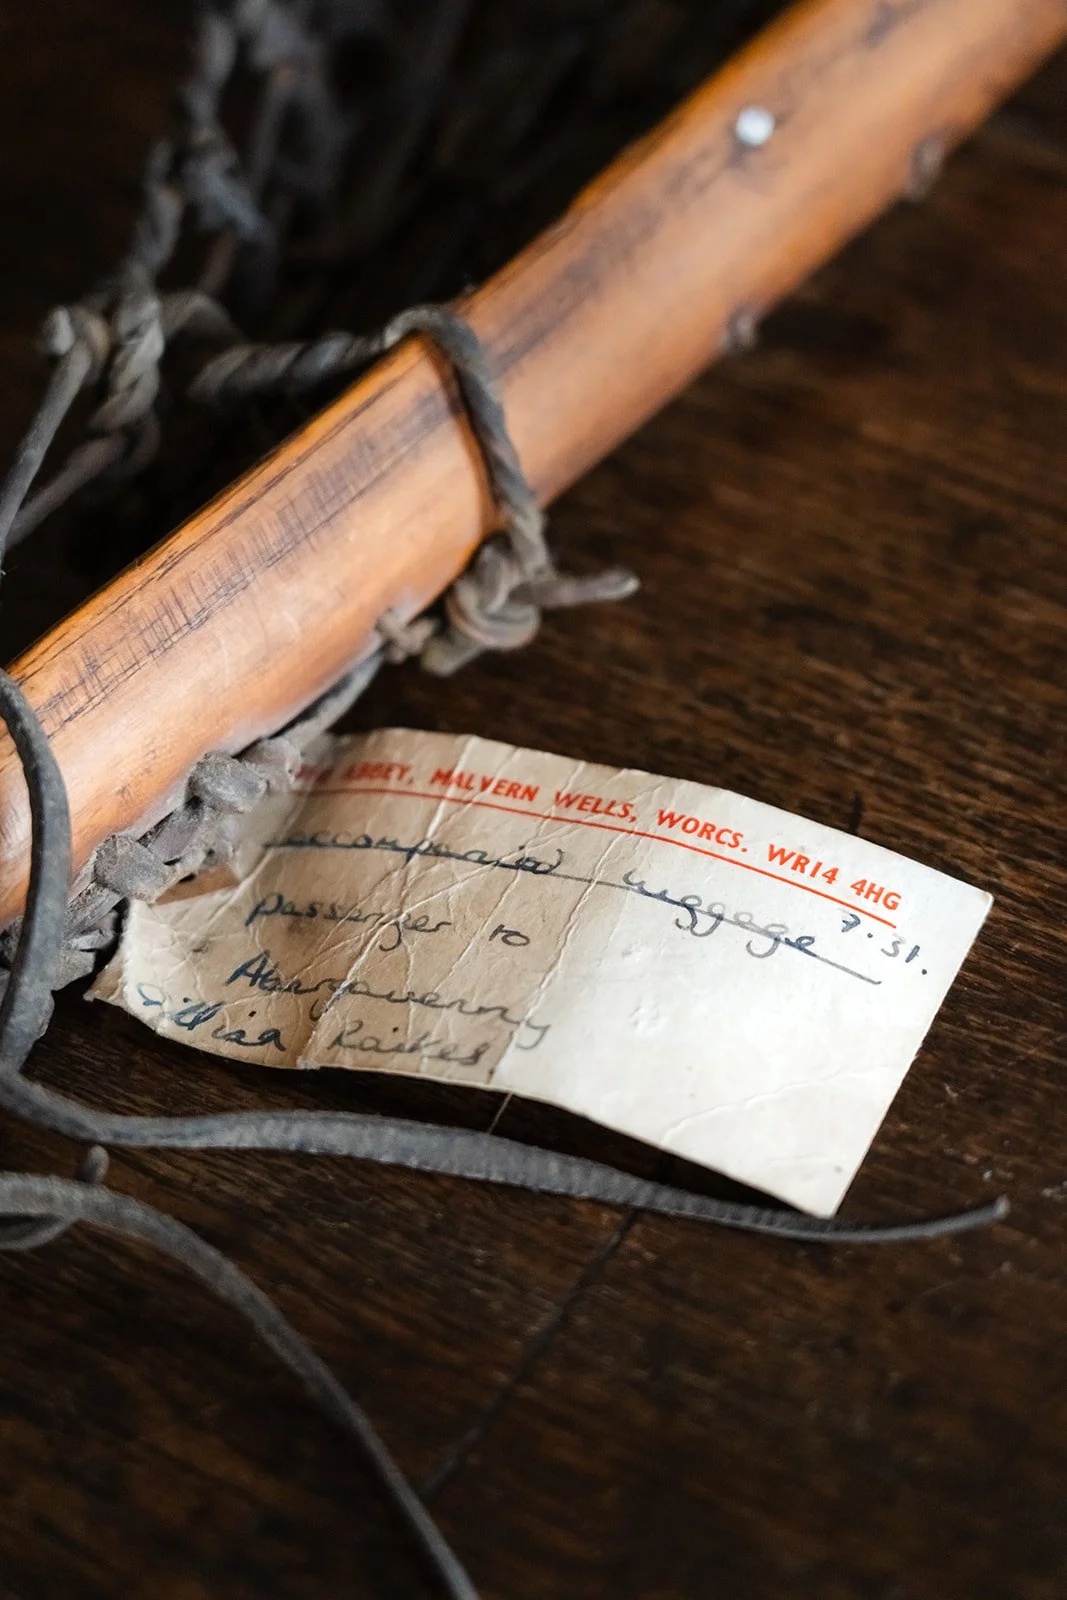 ABBEY, MALVERN WELLS, WORCS. WR14 4HG
accompanied luggage 7.31.
passenger to
Abergavenny
Raikes